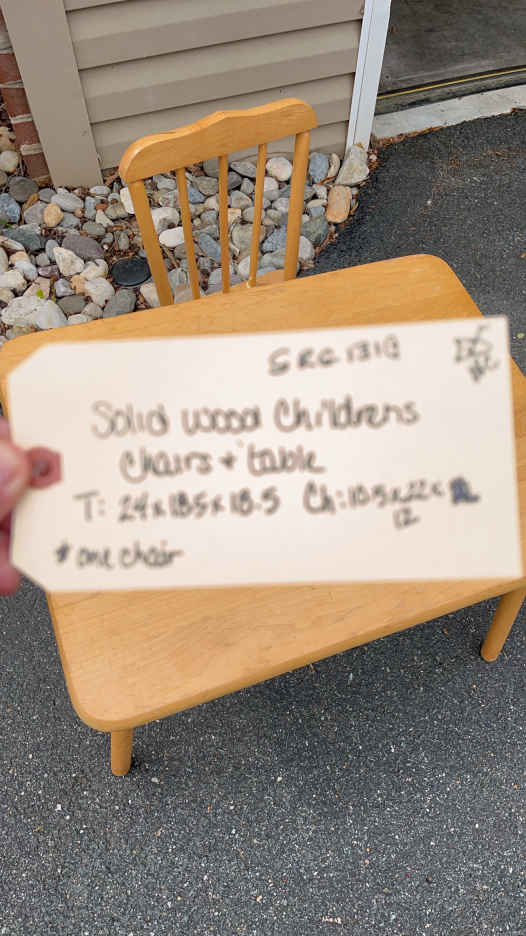 Solid wood Childrens
Chairs + table
T: 24x18.5x18.5 Ch: 10.5x22x
12
* one chair